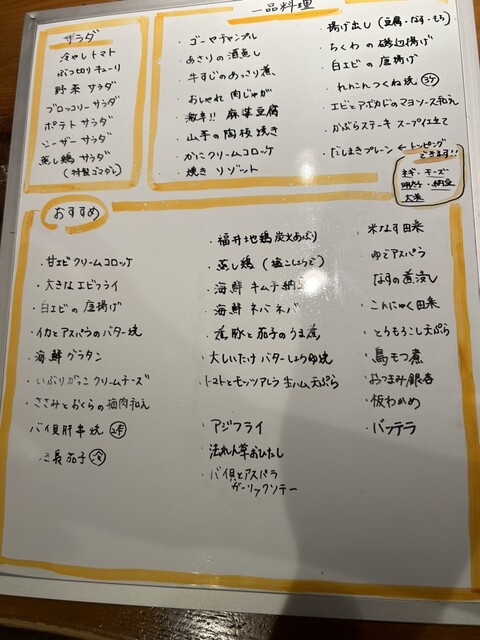 サラダ
冷やしトマト
ぶつ切りキューリ
野菜サラダ
ブロッコリーサラダ
ポテトサラダ
シーザーサラダ
蒸し鶏サラダ
(特製ゴマダレ)
一品料理
・ゴーヤチャンプル
・あさりの酒蒸し
・牛すじのあっさり煮
・おしゃれ肉じゃが
・激辛!! 麻婆豆腐
・山芋の陶板焼き
・かにクリームコロッケ
・焼きリゾット
・揚げ出し(豆腐・なす・もち)
・ちくわの磯辺揚げ
・白エビの唐揚げ
・れんこんつくね焼 3ケ
・エビとアボカドのマヨソース和え
・かぶらステーキ スープ仕立て
・だしまきプレーン ← トッピングできます!!
ネギ・チーズ
明太子・納豆
大葉
おすすめ
・甘エビクリームコロッケ
・大きなエビフライ
・白エビの唐揚げ
・イカとアスパラのバター焼
・海鮮グラタン
・いぶりがっこクリームチーズ
・ささみとおくらの梅肉和え
・バイ貝肝串焼 2本
長茄子
・福井地鶏炭火あぶり
・蒸し鶏(塩こしょうで)
・海鮮キムチ納豆
・海鮮ネバネバ
・豚と茄子のうま煮
・大しいたけバターしょうゆ焼
・トマトとモッツアレラ生ハム天ぷら
・アジフライ
・法れん草おひたし
・バイ貝とアスパラ
ガーリックソテー
・米なす田楽
・ゆでアスパラ
・なすの煮浸し
・こんにゃく田楽
・とうもろこし天ぷら
・鳥もつ煮
・おつまみ銀杏
・板わかめ
・バッテラ